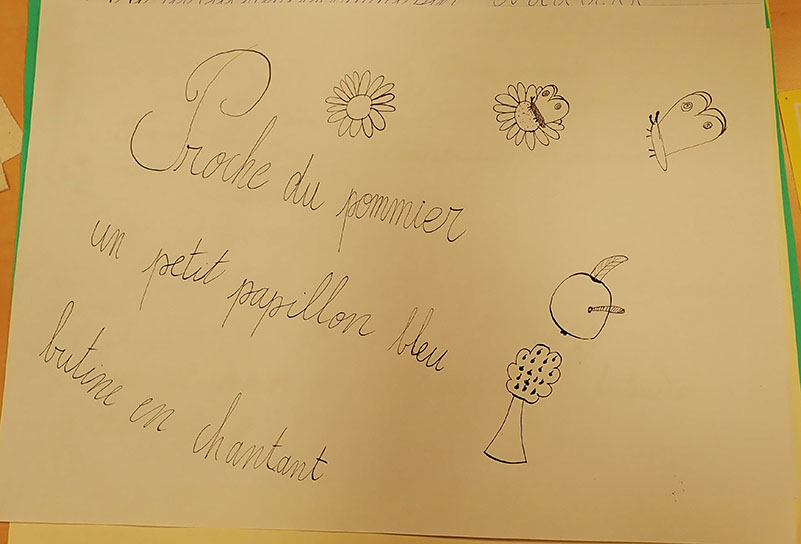 Proche du pommier
un petit papillon bleu
butine en chantant